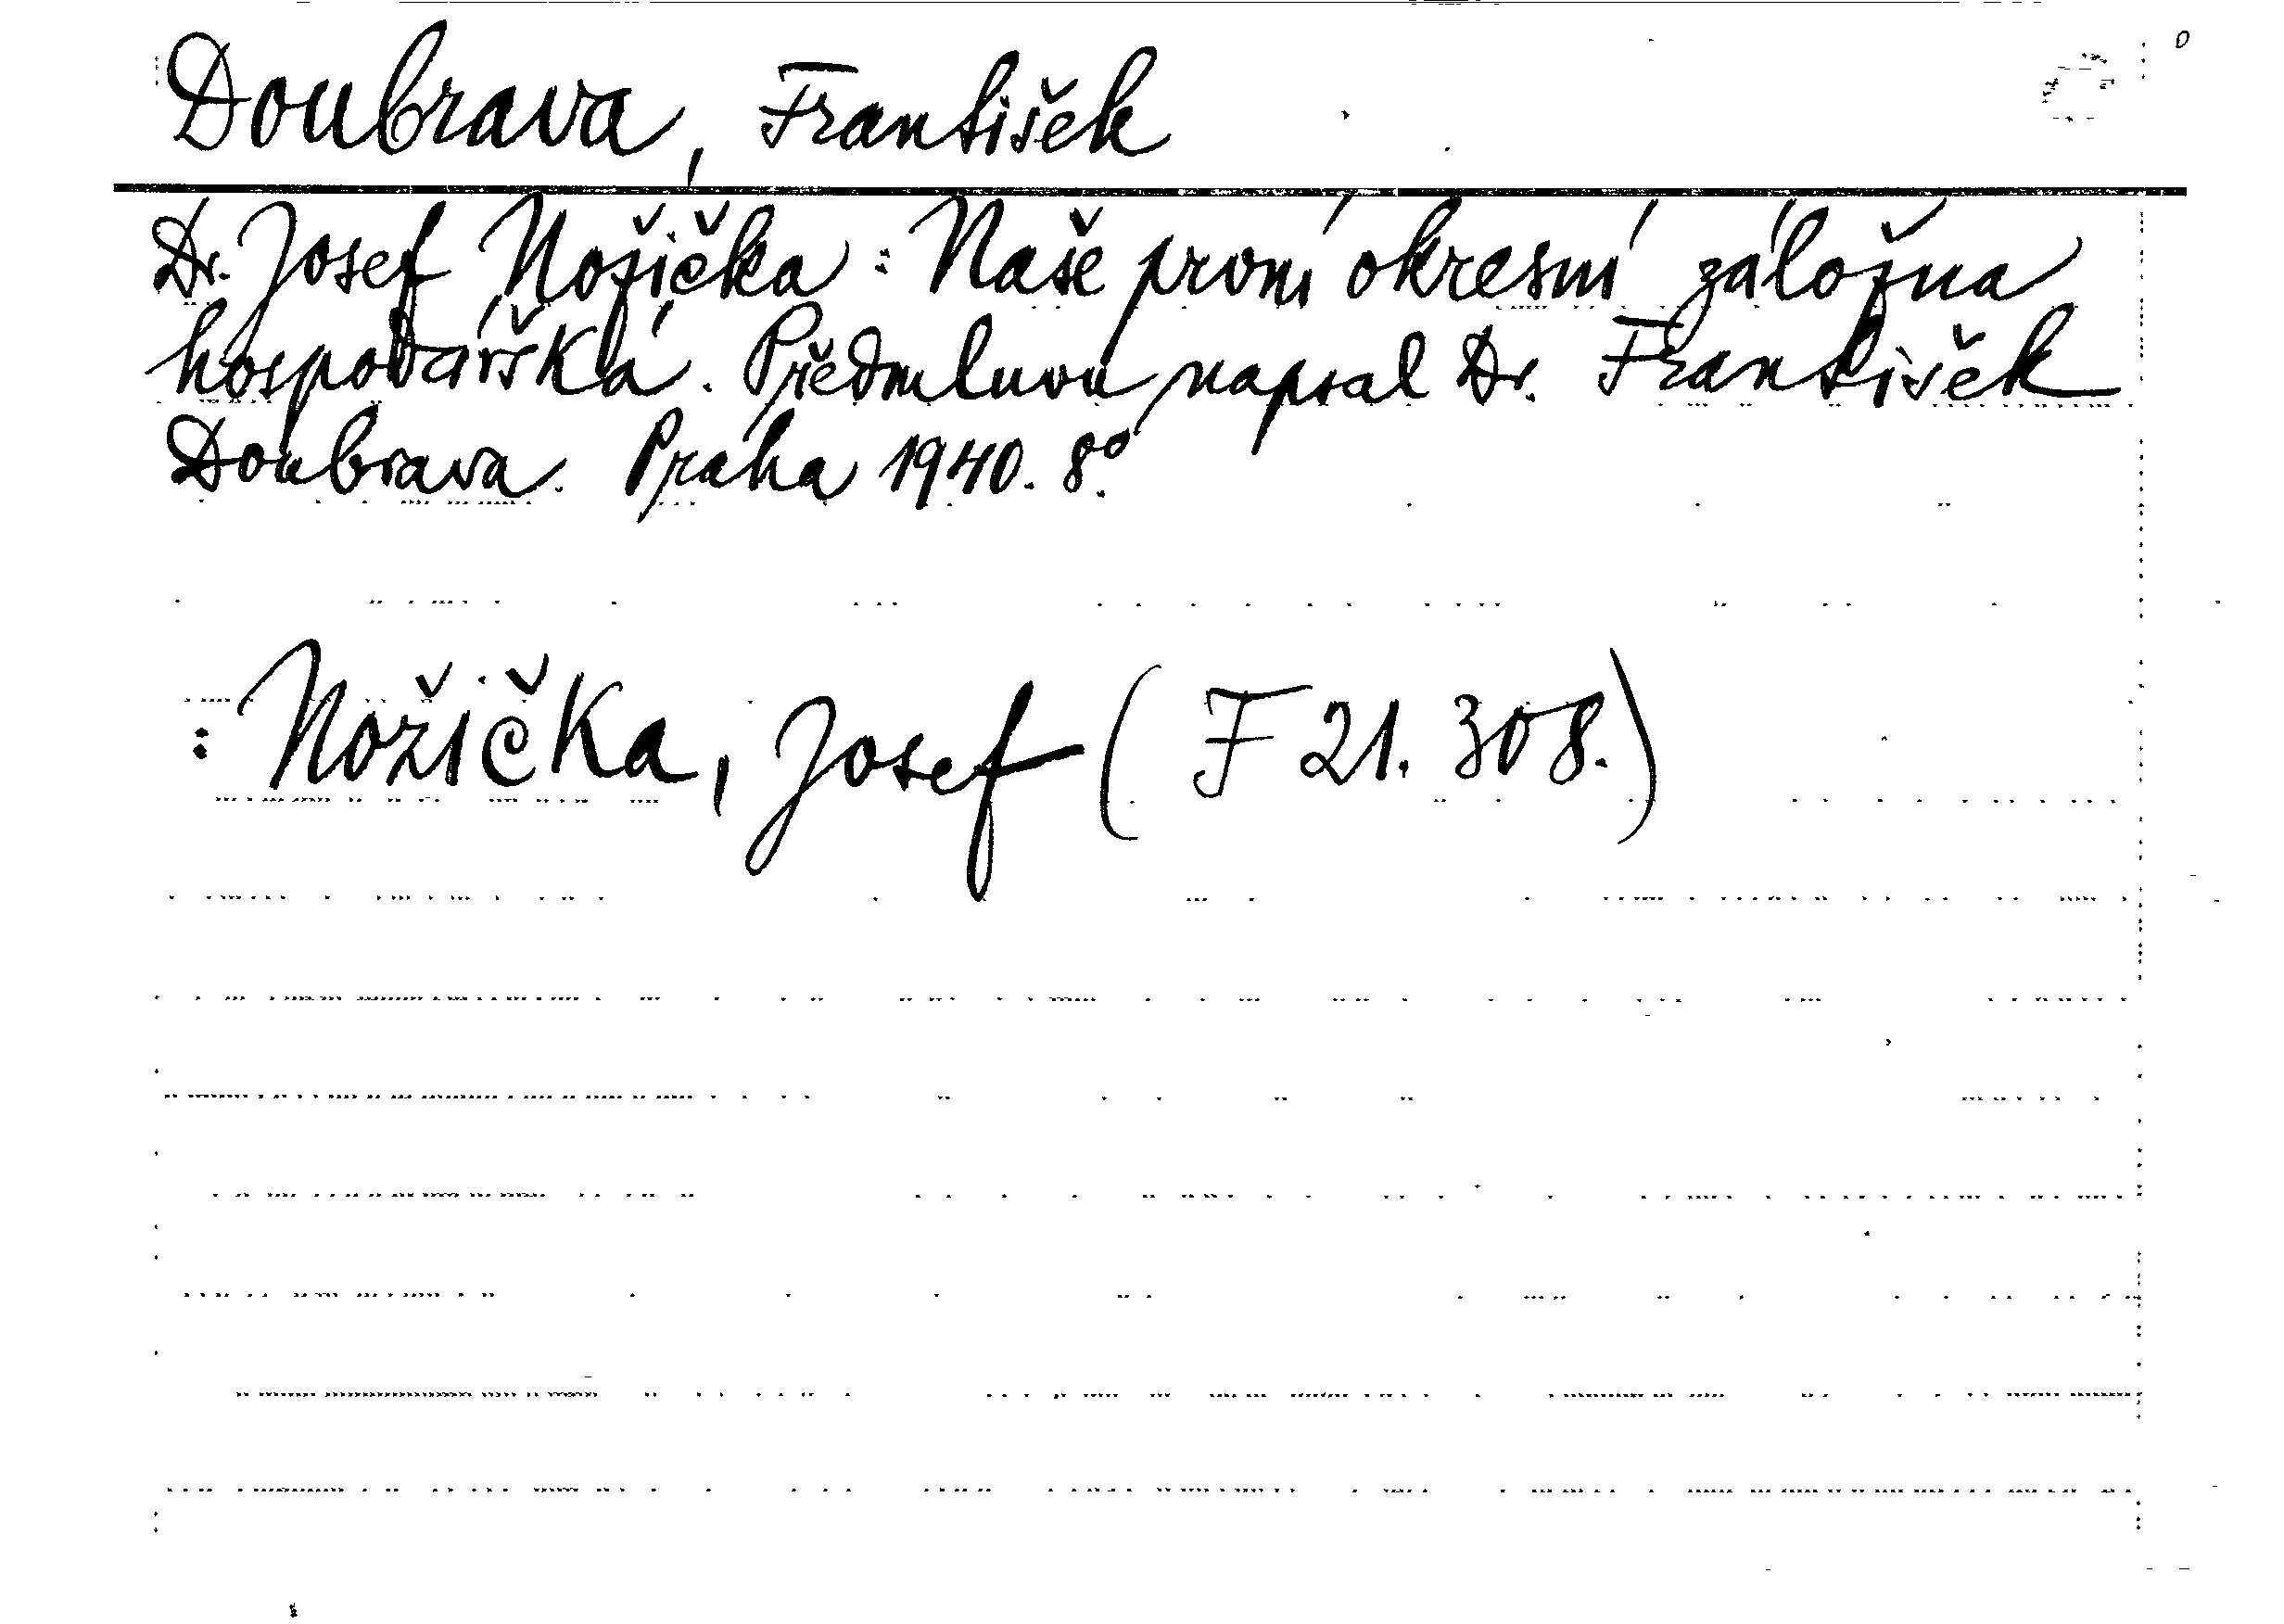 Doubrava, František
Dr. Josef Nožička: Naše první okresní záložna
hospodářská. Předmluvu napsal Dr. František
Doubrava. Praha 1940. 8°.
: Nožička, Josef (F 21. 308.)